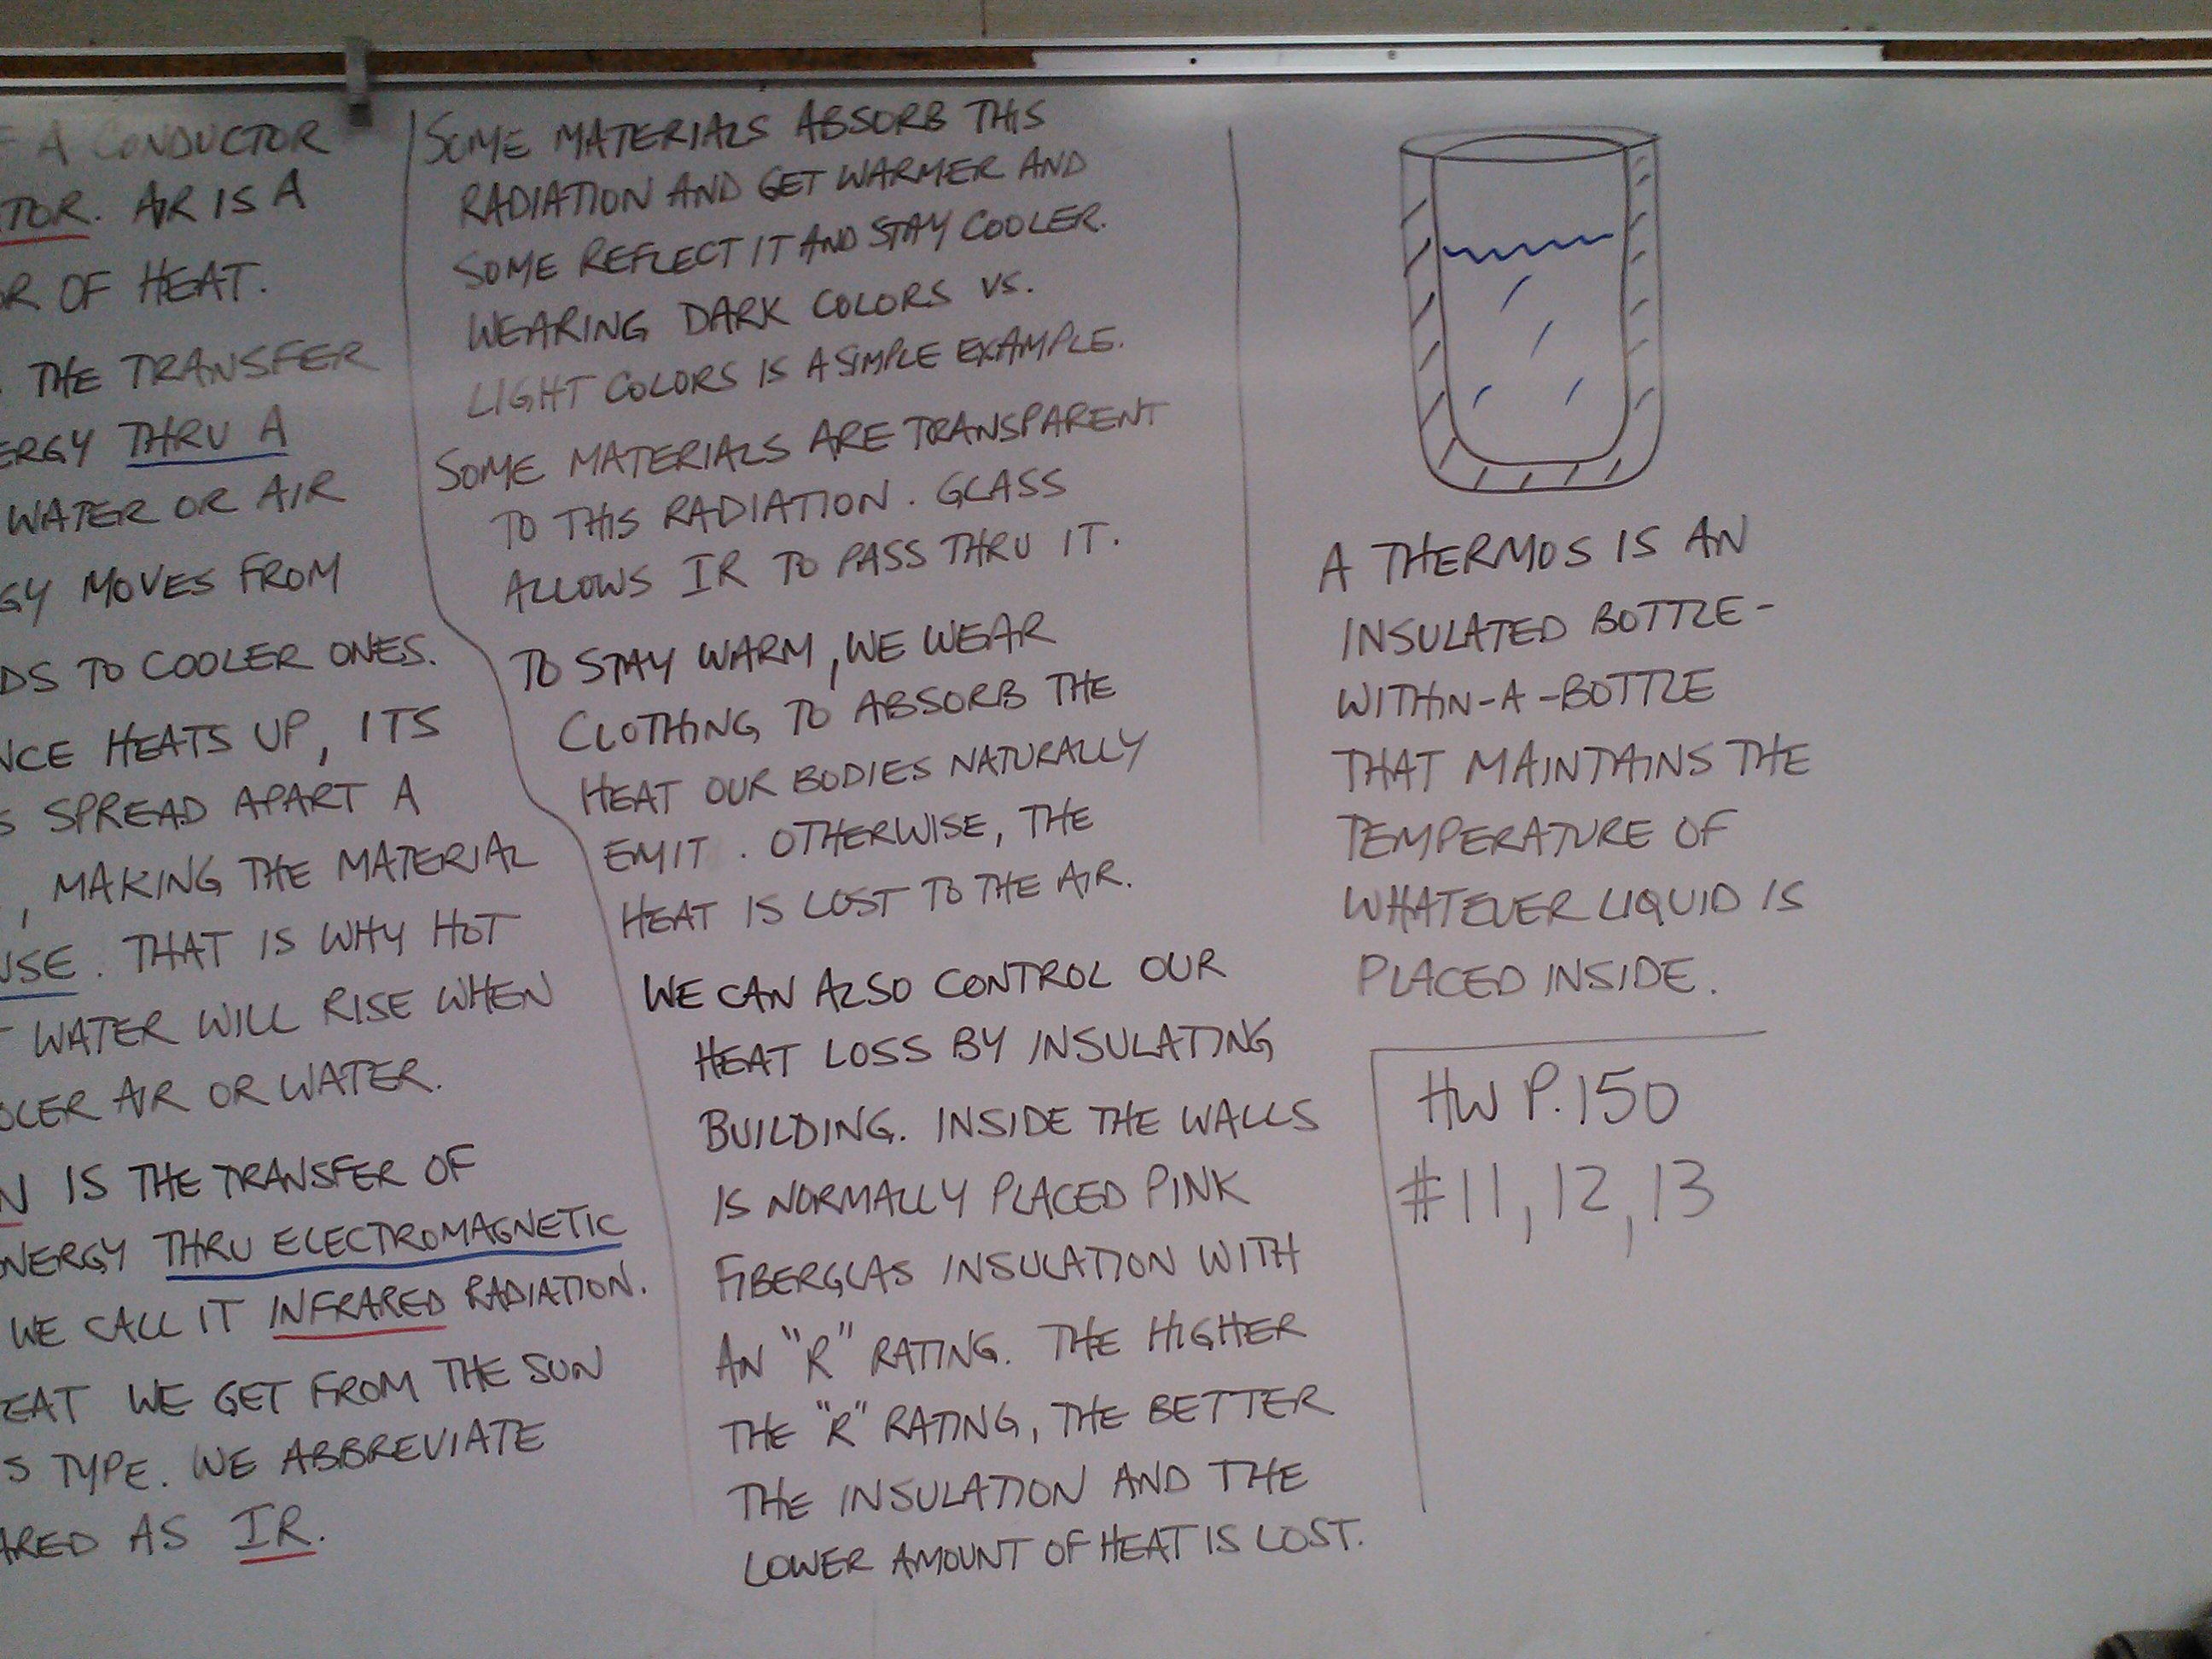 A CONDUCTOR
TOR. AIR IS A
OR OF HEAT.
THE TRANSFER
ERGY THRU A
WATER OR AIR
GY MOVES FROM
DS TO COOLER ONES.
NCE HEATS UP, ITS
S SPREAD APART A
, MAKING THE MATERIAL
NSE. THAT IS WHY HOT
WATER WILL RISE WHEN
OLER AIR OR WATER.
N IS THE TRANSFER OF
NERGY THRU ELECTROMAGNETIC
WE CALL IT INFRARED RADIATION.
EAT WE GET FROM THE SUN
S TYPE. WE ABBREVIATE
ARED AS IR.
SOME MATERIALS ABSORB THIS
RADIATION AND GET WARMER AND
SOME REFLECT IT AND STAY COOLER.
WEARING DARK COLORS VS.
LIGHT COLORS IS A SIMPLE EXAMPLE.
SOME MATERIALS ARE TRANSPARENT
TO THIS RADIATION. GLASS
ALLOWS IR TO PASS THRU IT.
TO STAY WARM, WE WEAR
CLOTHING TO ABSORB THE
HEAT OUR BODIES NATURALLY
EMIT. OTHERWISE, THE
HEAT IS LOST TO THE AIR.
WE CAN ALSO CONTROL OUR
HEAT LOSS BY INSULATING
BUILDING. INSIDE THE WALLS
IS NORMALLY PLACED PINK
FIBERGLAS INSULATION WITH
AN "R" RATING. THE HIGHER
THE "R" RATING, THE BETTER
THE INSULATION AND THE
LOWER AMOUNT OF HEAT IS LOST.
A THERMOS IS AN
INSULATED BOTTLE-
WITHIN-A-BOTTLE
THAT MAINTAINS THE
TEMPERATURE OF
WHATEVER LIQUID IS
PLACED INSIDE.
HW P.150
#11, 12, 13